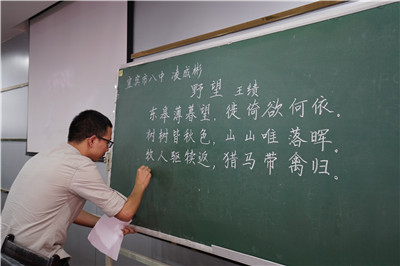 宜宾市八中 凌成彬
野望 王绩
东皋薄暮望，徙倚欲何依。
树树皆秋色，山山唯落晖。
牧人驱犊返，猎马带禽归。